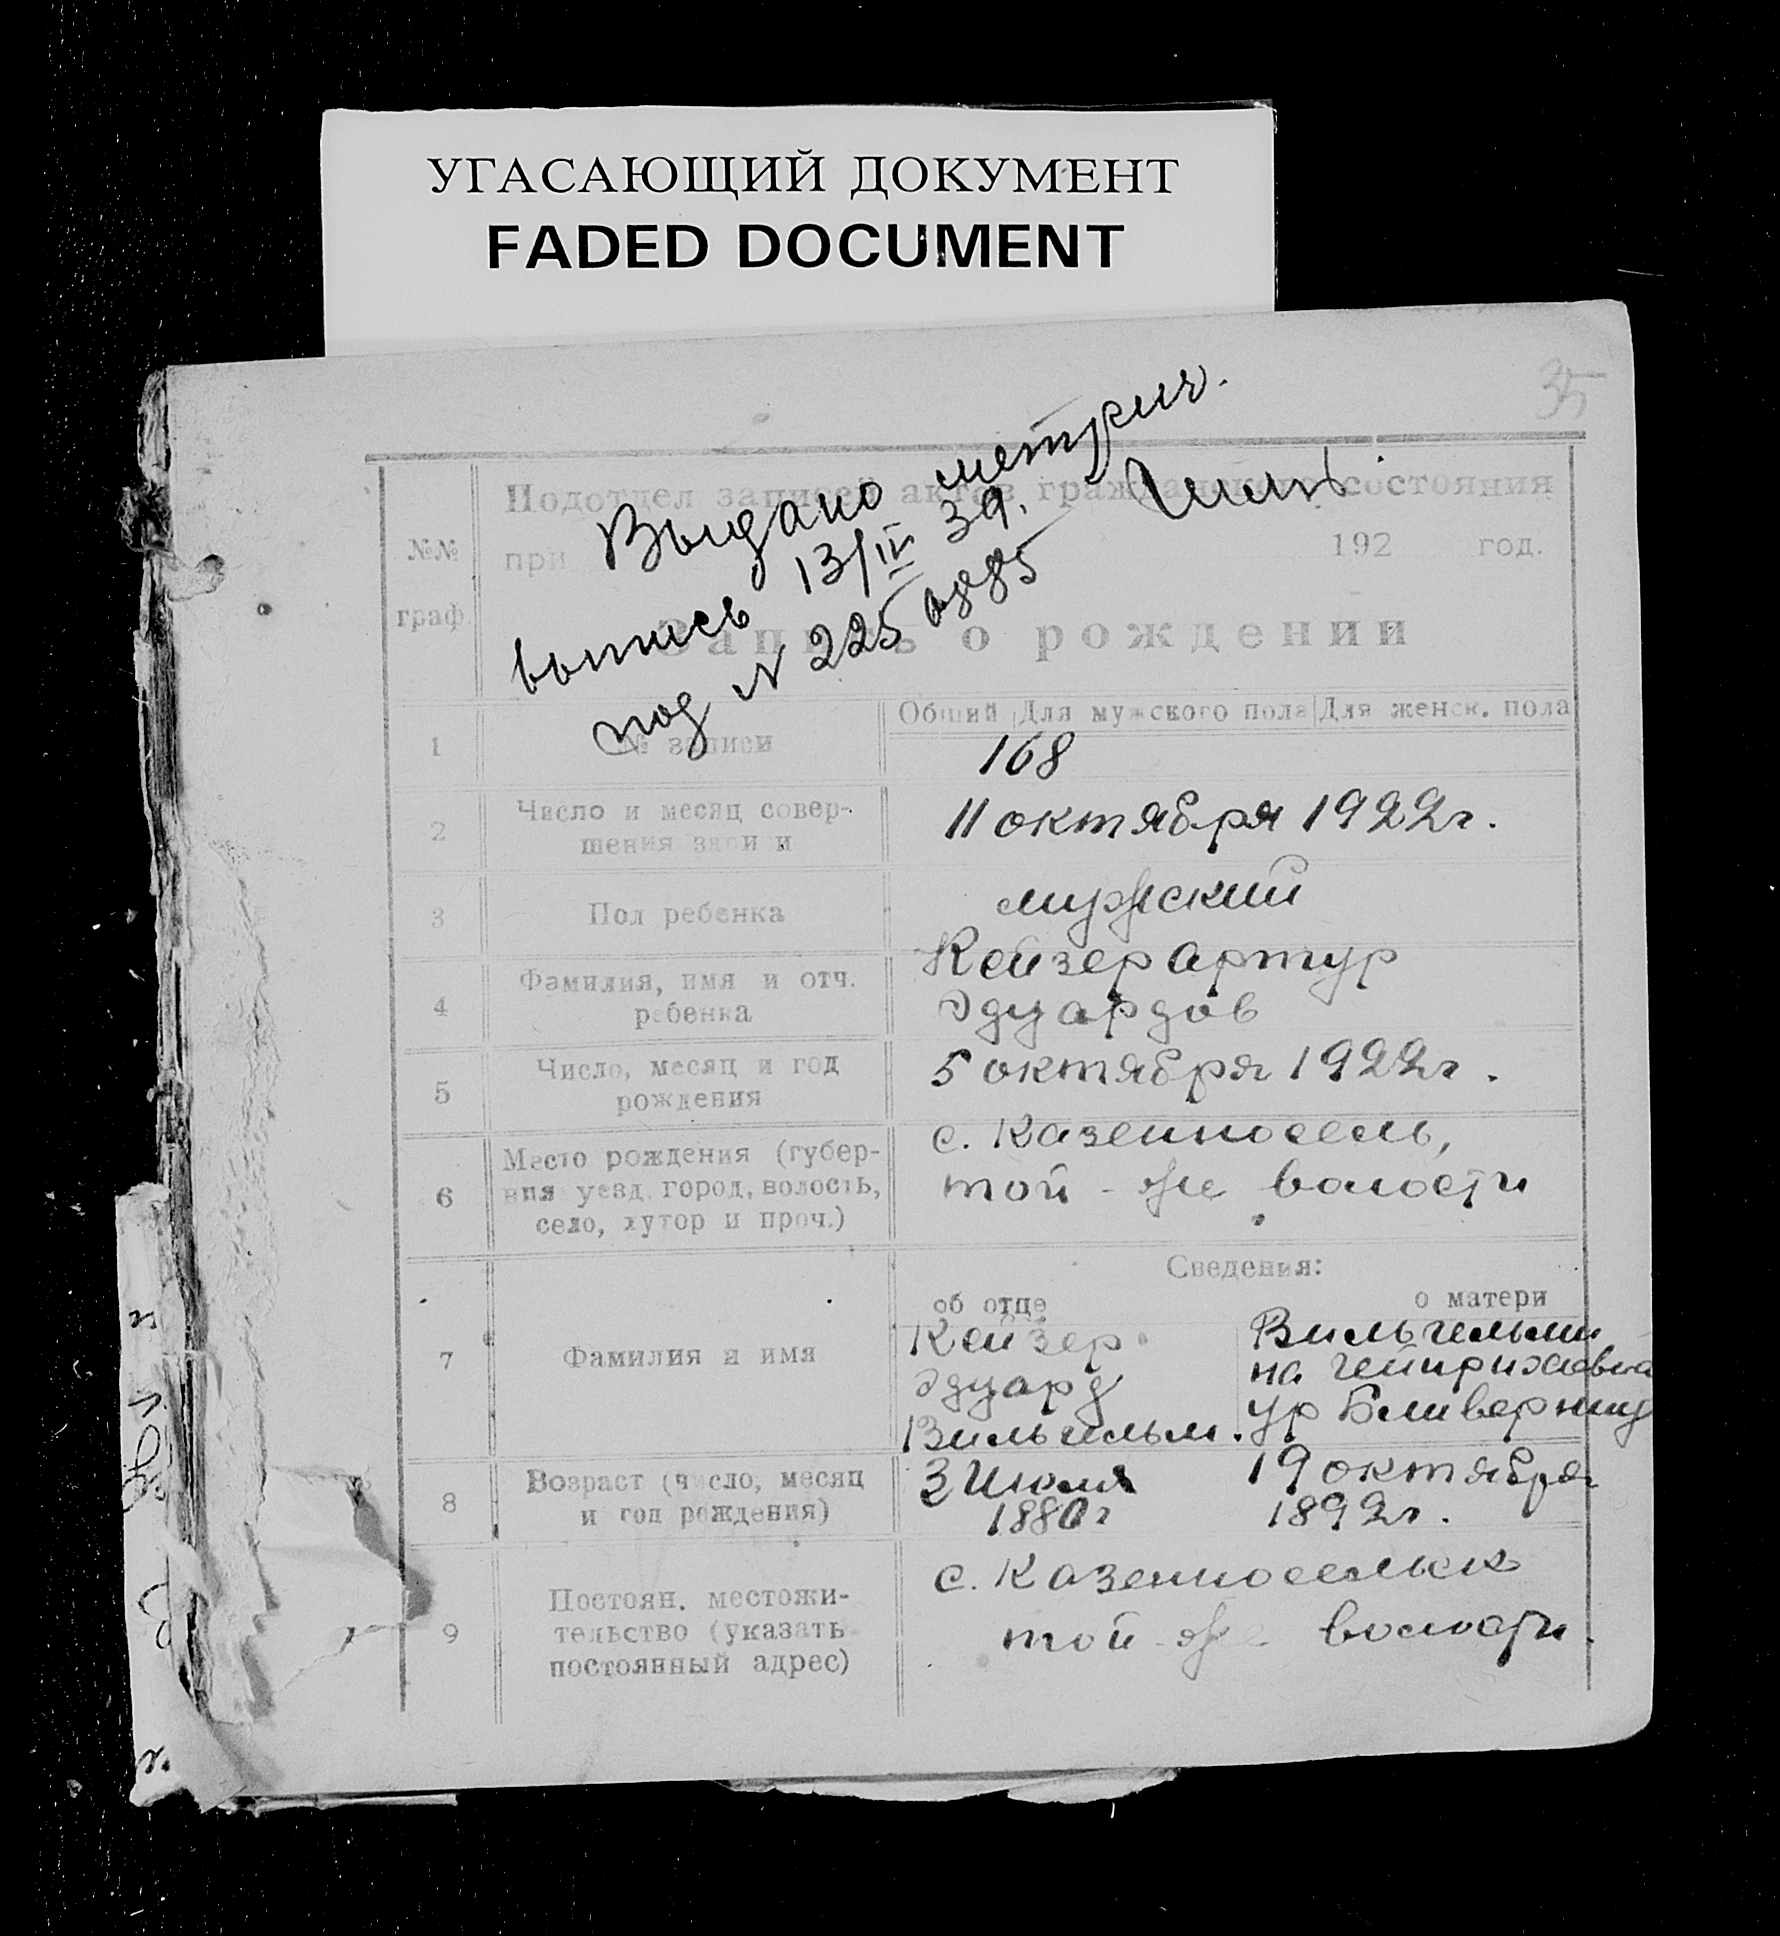 УГАСАЮЩИЙ ДОКУМЕНТ
FADED DOCUMENT
35
Выдано метрич.
вопись 13/IV 39.
под N 225
Подотдел записей актов гражданского состояния
№№
граф
при
192 год.
Запись о рождении
Общий Для мужского пола Для женск. пола
1 № записи 168
2 Число и месяц совер-
шения записи
11 октября 1922г.
3 Пол ребенка мужский
4 Фамилия, имя и отч.
ребенка
Кейзер Артур
Эдуардов
5 Число, месяц и год
рождения
5 октября 1922г.
6 Место рождения (губер-
ния уезд, город, волость,
село, хутор и проч.)
с. Казенносель,
той-же волости
Сведения:
об отце о матери
7 Фамилия и имя
Кейзер
Эдуард
Вильгельм.
Вильгельми
на Гейнриховна
ур
8 Возраст (число, месяц
и год рождения)
3 Июля
1880г
19 октября
1892г.
9 Постоян. местожи-
тельство (указать
постоянный адрес)
с. Казенносельск
той-же волости.